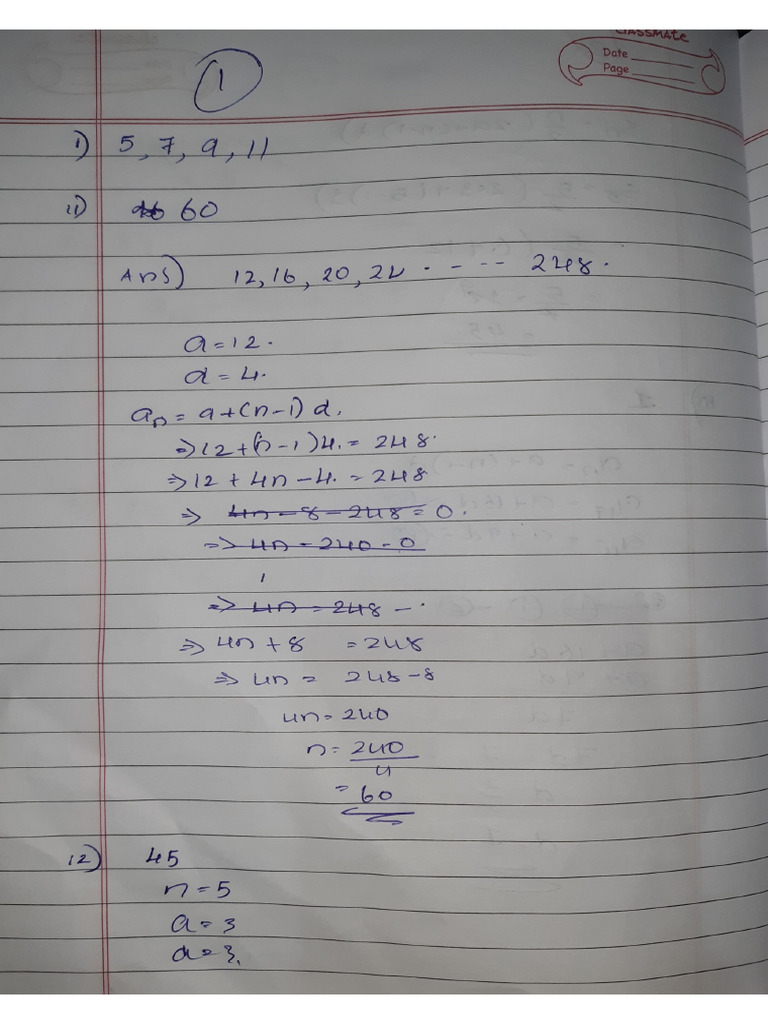 classmate
Date
Page
1
1) 5, 7, 9, 11
11) 60
Ans) 12, 16, 20, 24 . - -- 248.
a = 12.
d = 4.
an = a+(n-1) d.
⇒ 12 +(n-1)4. = 248.
⇒ 12 + 4n - 4. = 248
⇒ 4n - 8 - 248 = 0.
⇒ 4n - 240 - 0
⇒ 4n = 248 - .
⇒ 4n + 8 = 248
⇒ 4n = 248 - 8
4n = 240
n = 240
4
= 60
12) 45
n = 5
a = 3
d = 3.